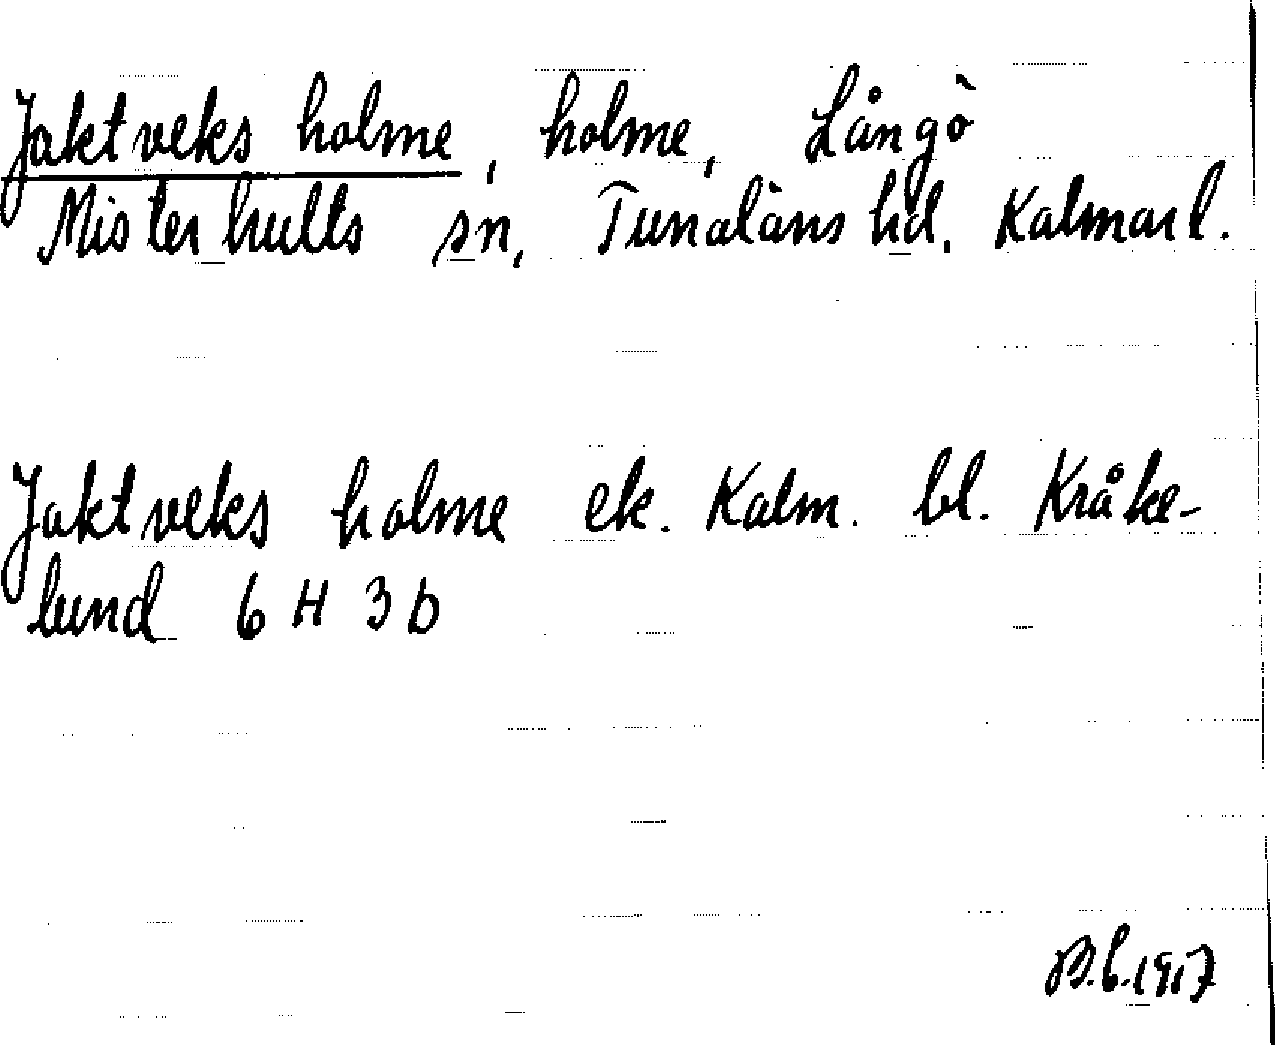 Jaktveks holme, holme, Långö
Misterhults sn, Tunaläns hd, Kalmar l.
Jaktveks holme ek. Kalm. bl. Kråke-
lund 6 H 3 b
B.C.1917